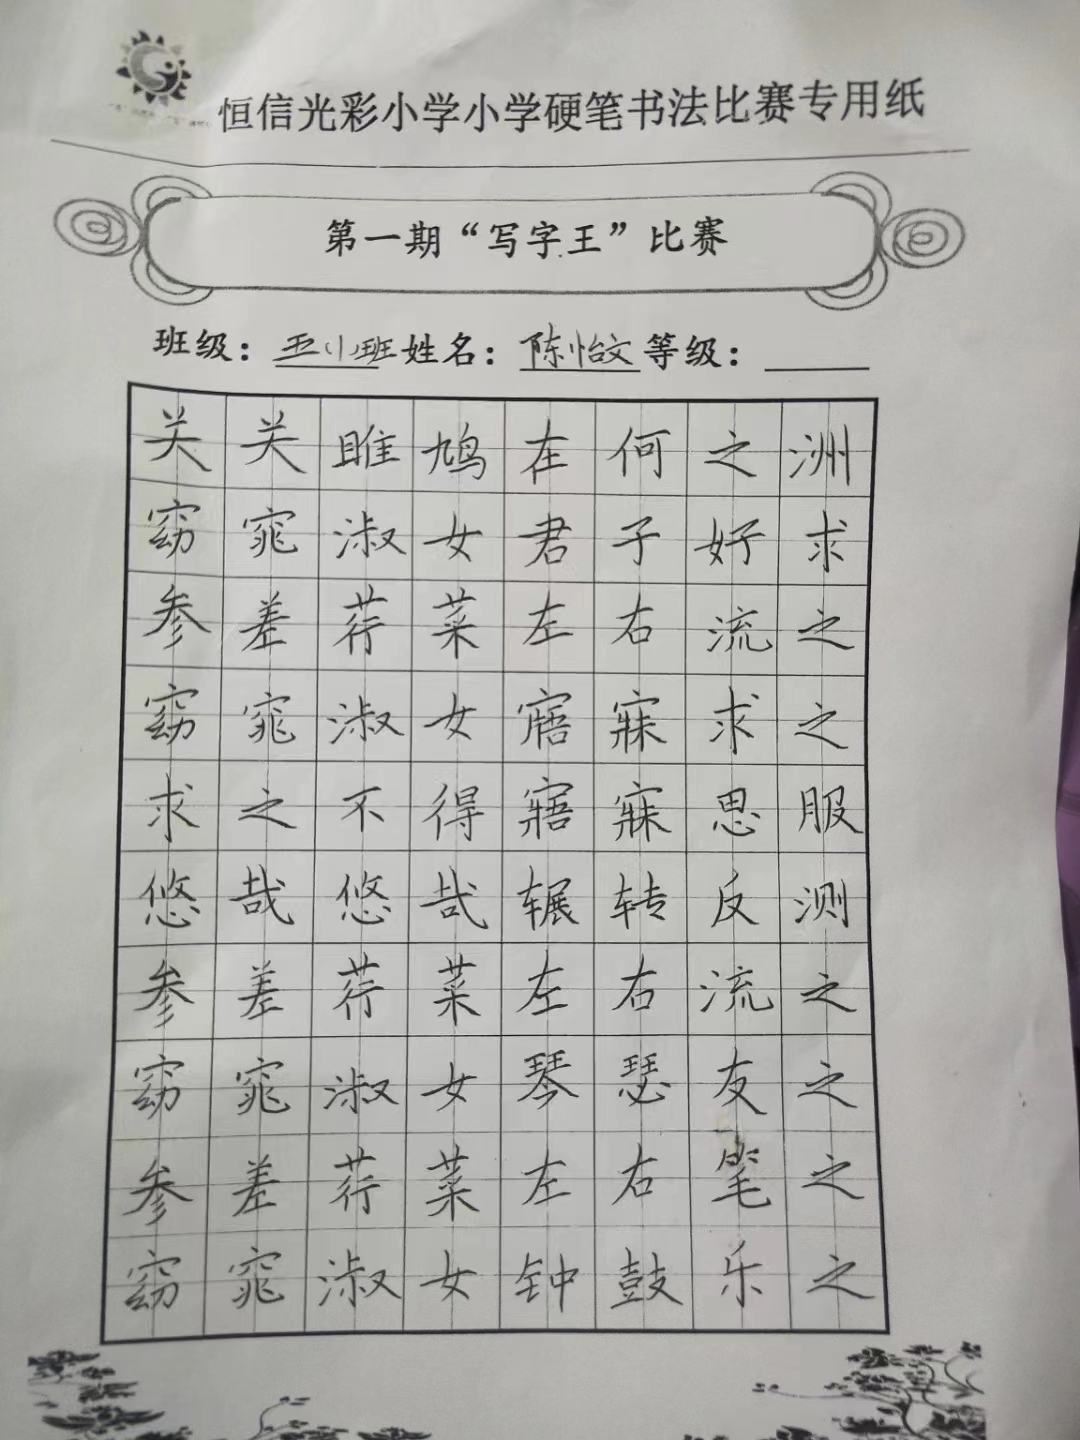 恒信光彩小学小学硬笔书法比赛专用纸
第一期“写字王”比赛
班级：五小班姓名：陈怡文等级：
关关雎鸠在何之洲
窈窕淑女君子好求
参差荇菜左右流之
窈窕淑女寤寐求之
求之不得寤寐思服
悠哉悠哉辗转反测
参差荇菜左右流之
窈窕淑女琴瑟友之
参差荇菜左右笔之
窈窕淑女钟鼓乐之